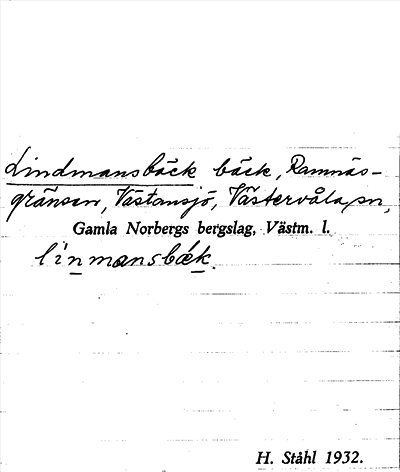 Lindmansbäck bäck, Ramnäs-
gränsen, Västansjö, Västervåla sn,
Gamla Norbergs bergslag, Västm. l.
linmansbäk.
H. Ståhl 1932.